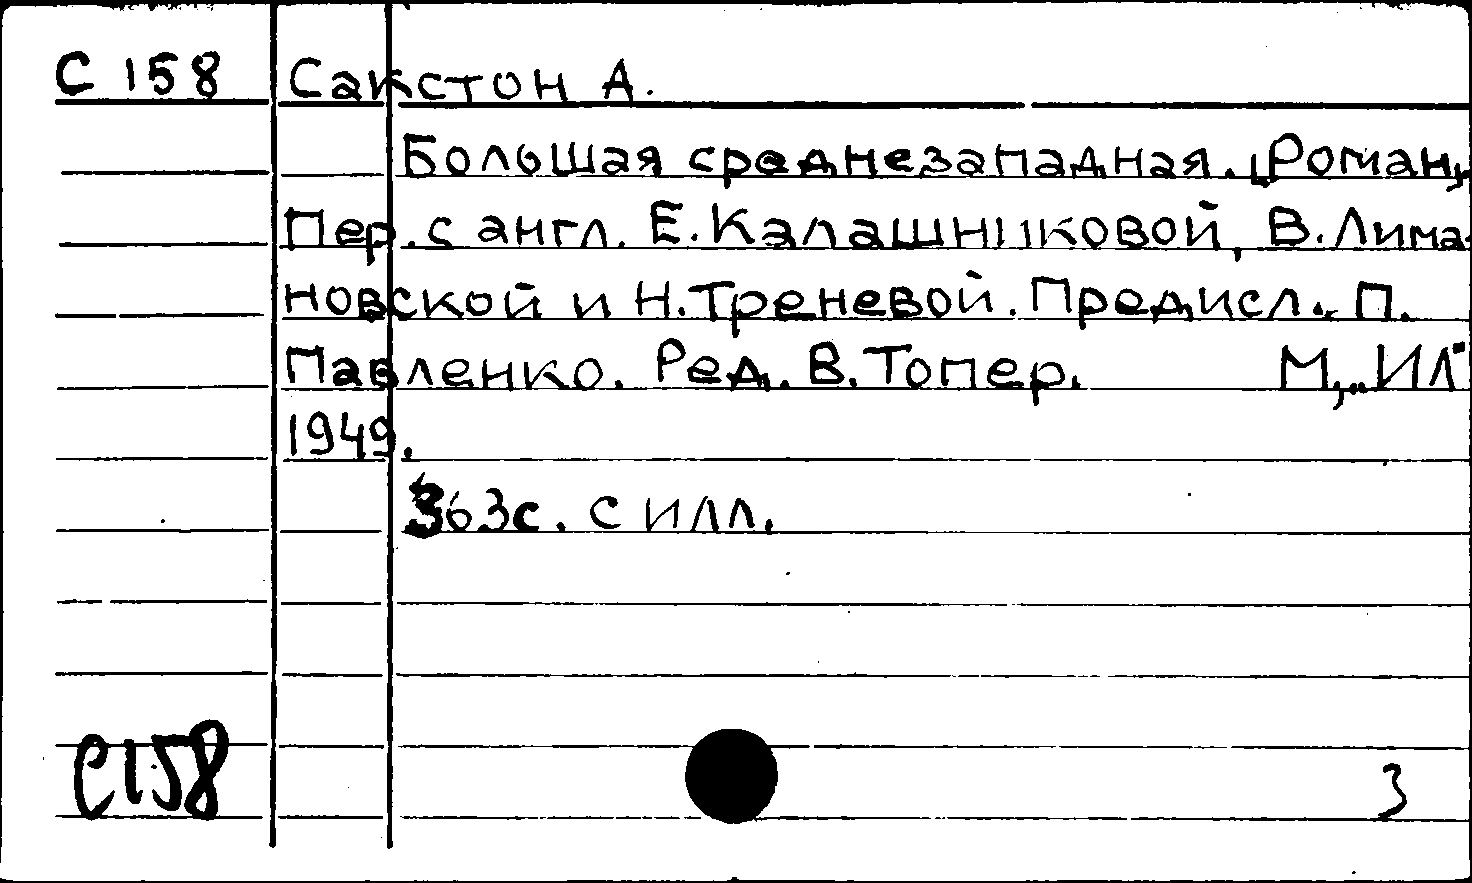 С 158 Сакстон А.
Большая среднезападная. [Роман]
Пер. с англ. Е. Калашниковой, В. Лима-
новской и Н. Треневой. Предисл. П.
Павленко. Ред. В. Топер. М., „ИЛ"
1949.
363с. с илл.
С158
3